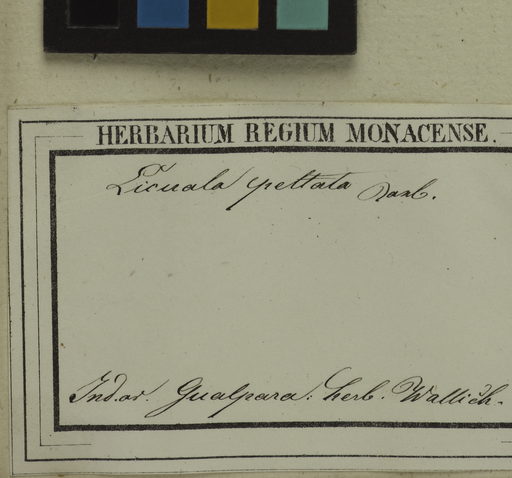 HERBARIUM REGIUM MONACENSE.
Licuala peltata Roxb.
Ind. or. Gualpara. herb. Wallich.